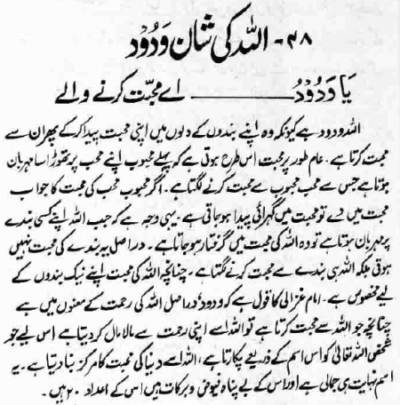 ۴۸۔ اللہ کی شان وَدُوْد
یَا وَدُوْدُ ـــــــــــــ اے محبّت کرنے والے
اللہ ودود ہے کیونکہ وہ اپنے بندوں کے دلوں میں اپنی محبت پیدا کر کے پھر ان سے
محبت کرتا ہے۔ عام طور پر محبت اس طرح ہوتی ہے کہ پہلے محبوب اپنے محب پر تھوڑا سا مہربان
ہوتا ہے جس سے محب محبوب سے محبت کرنے لگتا ہے۔ اگر محبوب محب کی محبت کا جواب
محبت میں دے تو محبت میں گہرائی پیدا ہو جاتی ہے۔ یہی وجہ ہے کہ جب اللہ اپنے کسی بندے
پر مہربان ہوتا ہے تو وہ اللہ کی محبت میں گرفتار ہو جاتا ہے۔ در اصل یہ بندے کی محبت نہیں
ہوتی بلکہ اللہ ہی بندے سے محبت کرنے لگتا ہے۔ چنانچہ اللہ کی محبت اپنے نیک بندوں کے
لیے مخصوص ہے۔ امام غزالی کا قول ہے کہ ودود در اصل اللہ کی رحمت کے معنوں میں ہے
چنانچہ جو اللہ سے محبت کرتا ہے تو اللہ اسے اپنی رحمت سے مالا مال کر دیتا ہے اس لیے جو
شخص اللہ تعالیٰ کو اس اسم کے ذریعے پکارتا ہے، اللہ اسے دنیا کی محبت کا مرکز بنا دیتا ہے۔ یہ
اسم نہایت ہی جمالی ہے اور اس کے بے پناہ فیوض و برکات ہیں اس کے اعداد ۲۰ ہیں۔